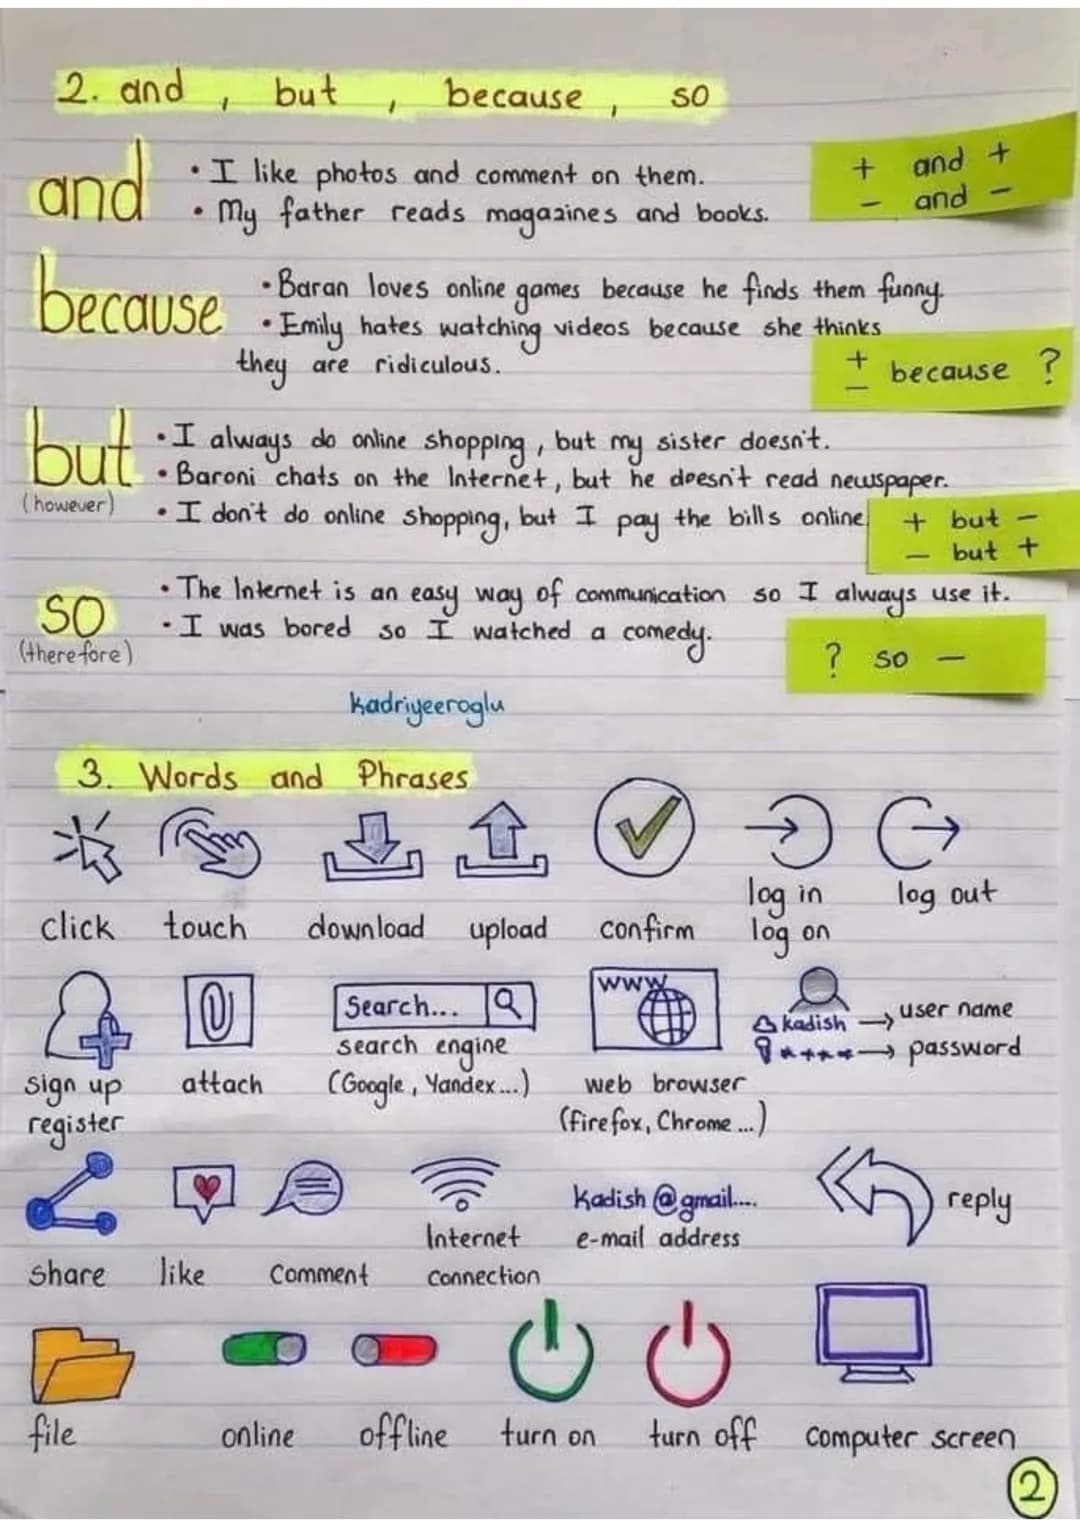 2. and , but , because , so
and
• I like photos and comment on them.
• My father reads magazines and books.
+ and +
- and -
because
• Baran loves online games because he finds them funny.
• Emily hates watching videos because she thinks
they are ridiculous.
+
- because ?
but
(however)
• I always do online shopping, but my sister doesn't.
• Baroni chats on the Internet, but he doesn't read newspaper.
• I don't do online shopping, but I pay the bills online
+ but -
- but +
so
(therefore)
• The Internet is an easy way of communication so I always use it.
• I was bored so I watched a comedy.
? so -
kadriyeeroglu
3. Words and Phrases
click touch download upload confirm
log in
log on
log out
sign up
register
attach
Search...
search engine
(Google, Yandex...)
WWW
web browser
(Firefox, Chrome...)
kadish → user name
***** → password
share like comment
Internet
connection
Kadish@gmail....
e-mail address
reply
file online offline turn on turn off computer screen
2